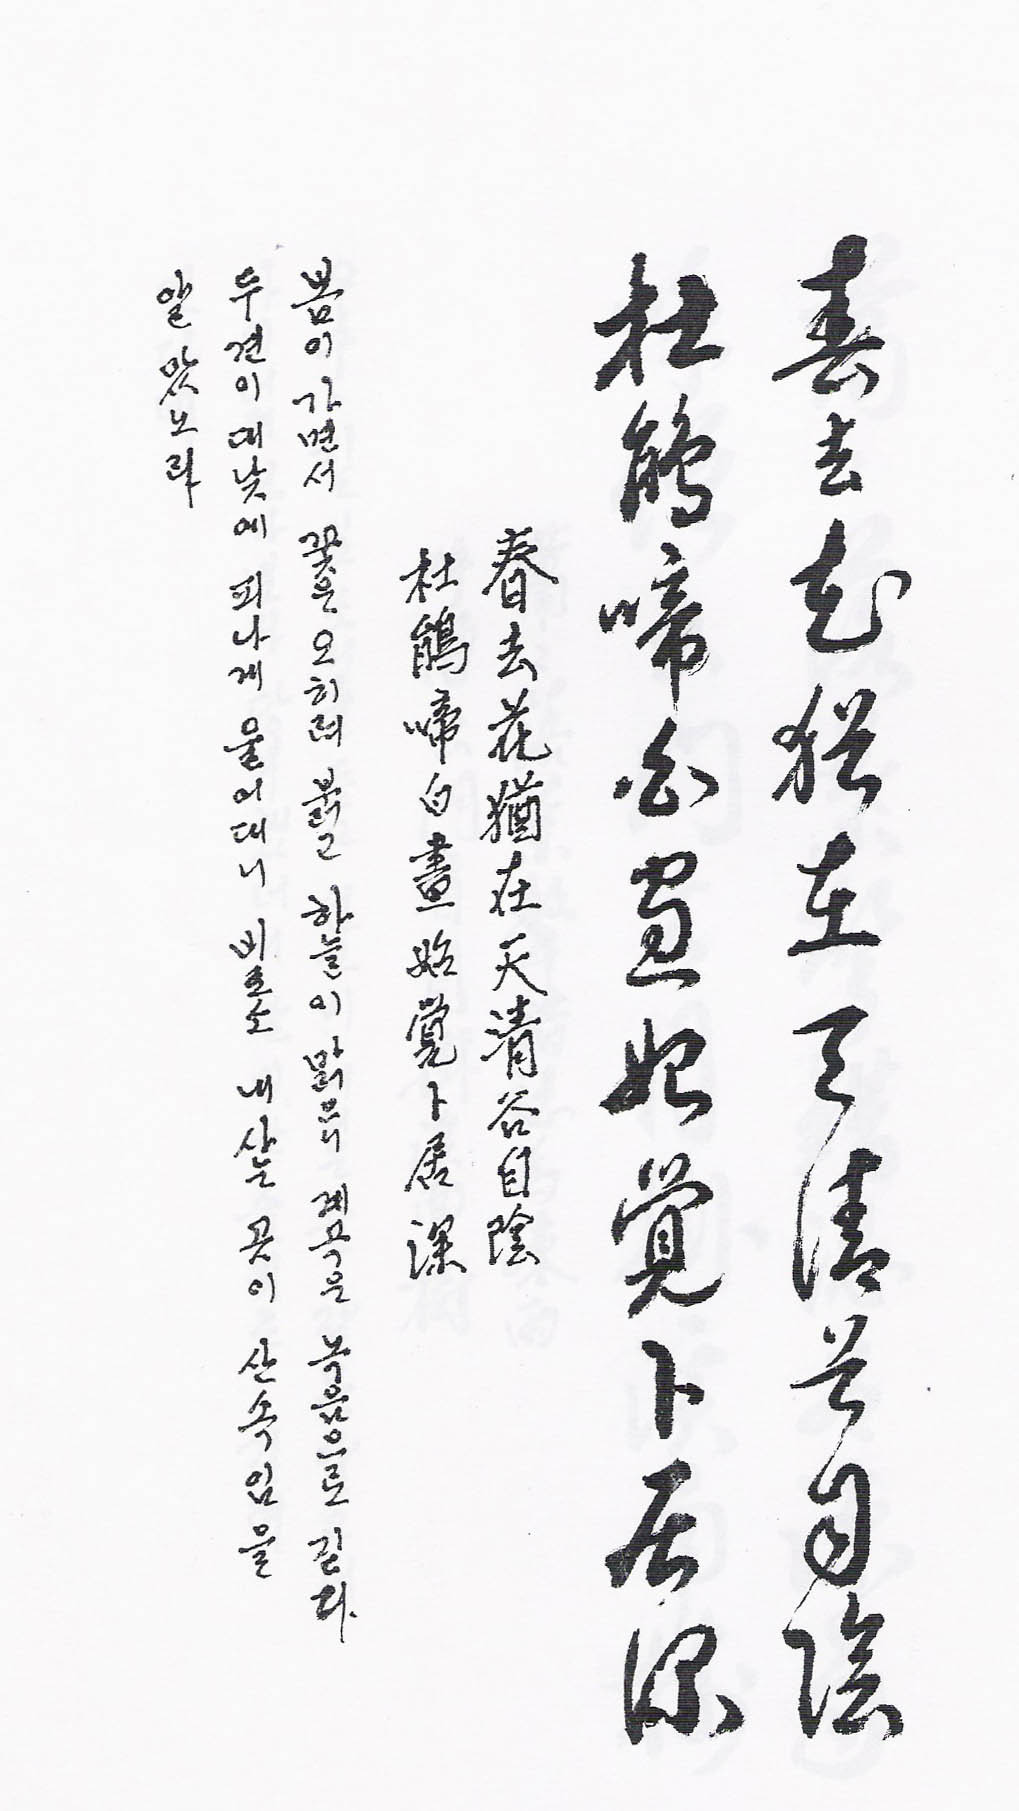 春去花猶在天清谷自陰
杜鵑啼白晝始覺卜居深
春去花猶在天清谷自陰
杜鵑啼白晝始覺卜居深
봄이 가면서 꽃은 오히려 붉고 하늘이 맑으니 계곡은 녹음으로 짙다.
두견이 대낮에 피나게 울어대니 비로소 내 사는 곳이 산속임을
알았노라